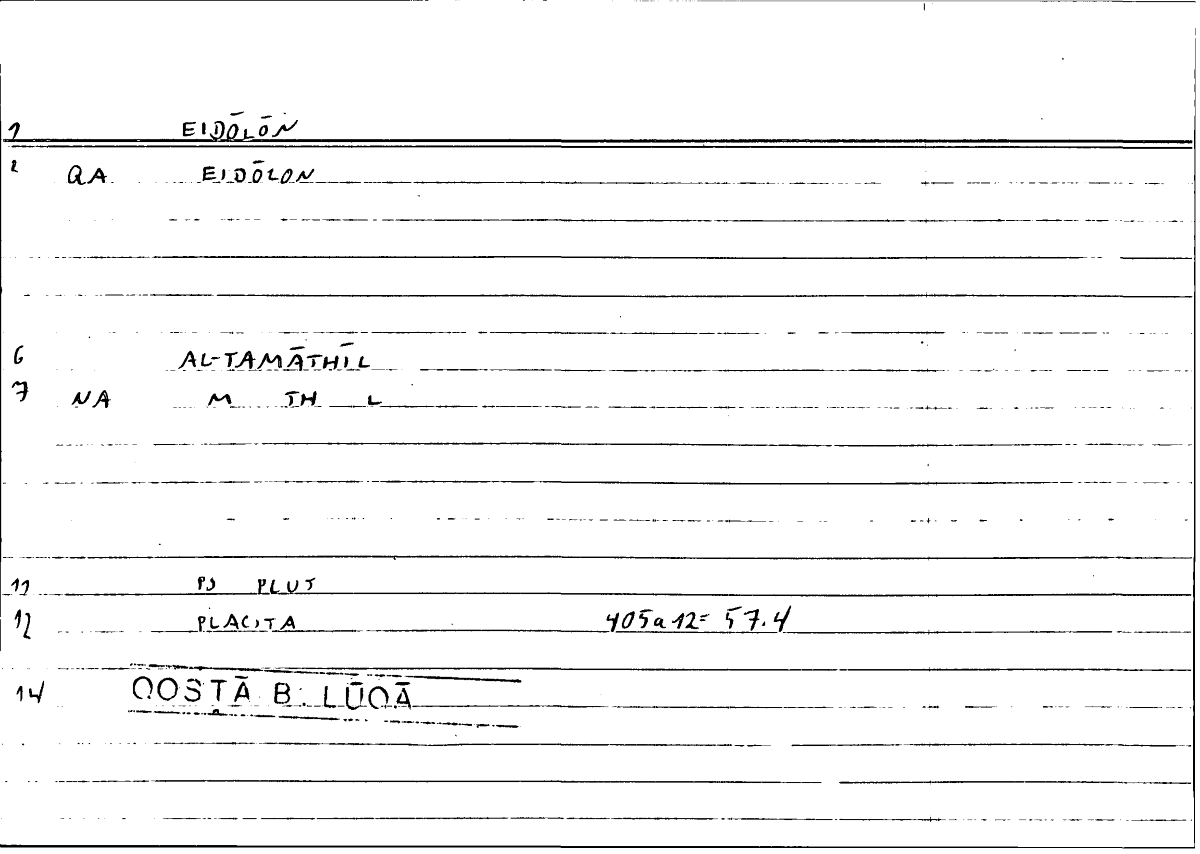 1 EIDŌLŌN
2 QA EIDŌLON
6 AL-TAMĀTHĪL
7 NA M TH L
11 PS PLUT
12 PLACITA 405a12= 57.4
14 QOSṬĀ B. LŪQĀ